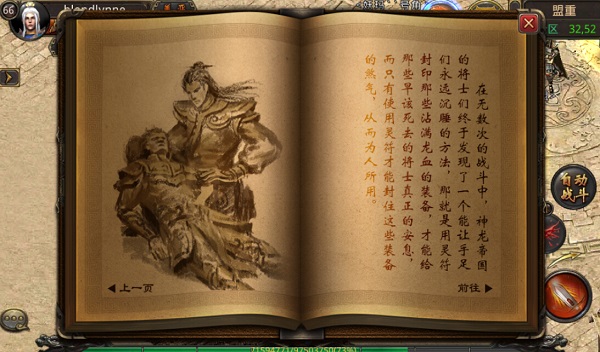 66
盟重
区 32,52
在无数次的战斗中，神龙帝国
的将士们终于发现了一个能让手足
们永远沉睡的方法，那就是用灵符
封印那些沾满龙血的装备，才能给
那些早该死去的将士真正的安息，
而只有使用灵符才能封住这些装备
的煞气，从而为人所用。
自动
战斗
上一页
前往